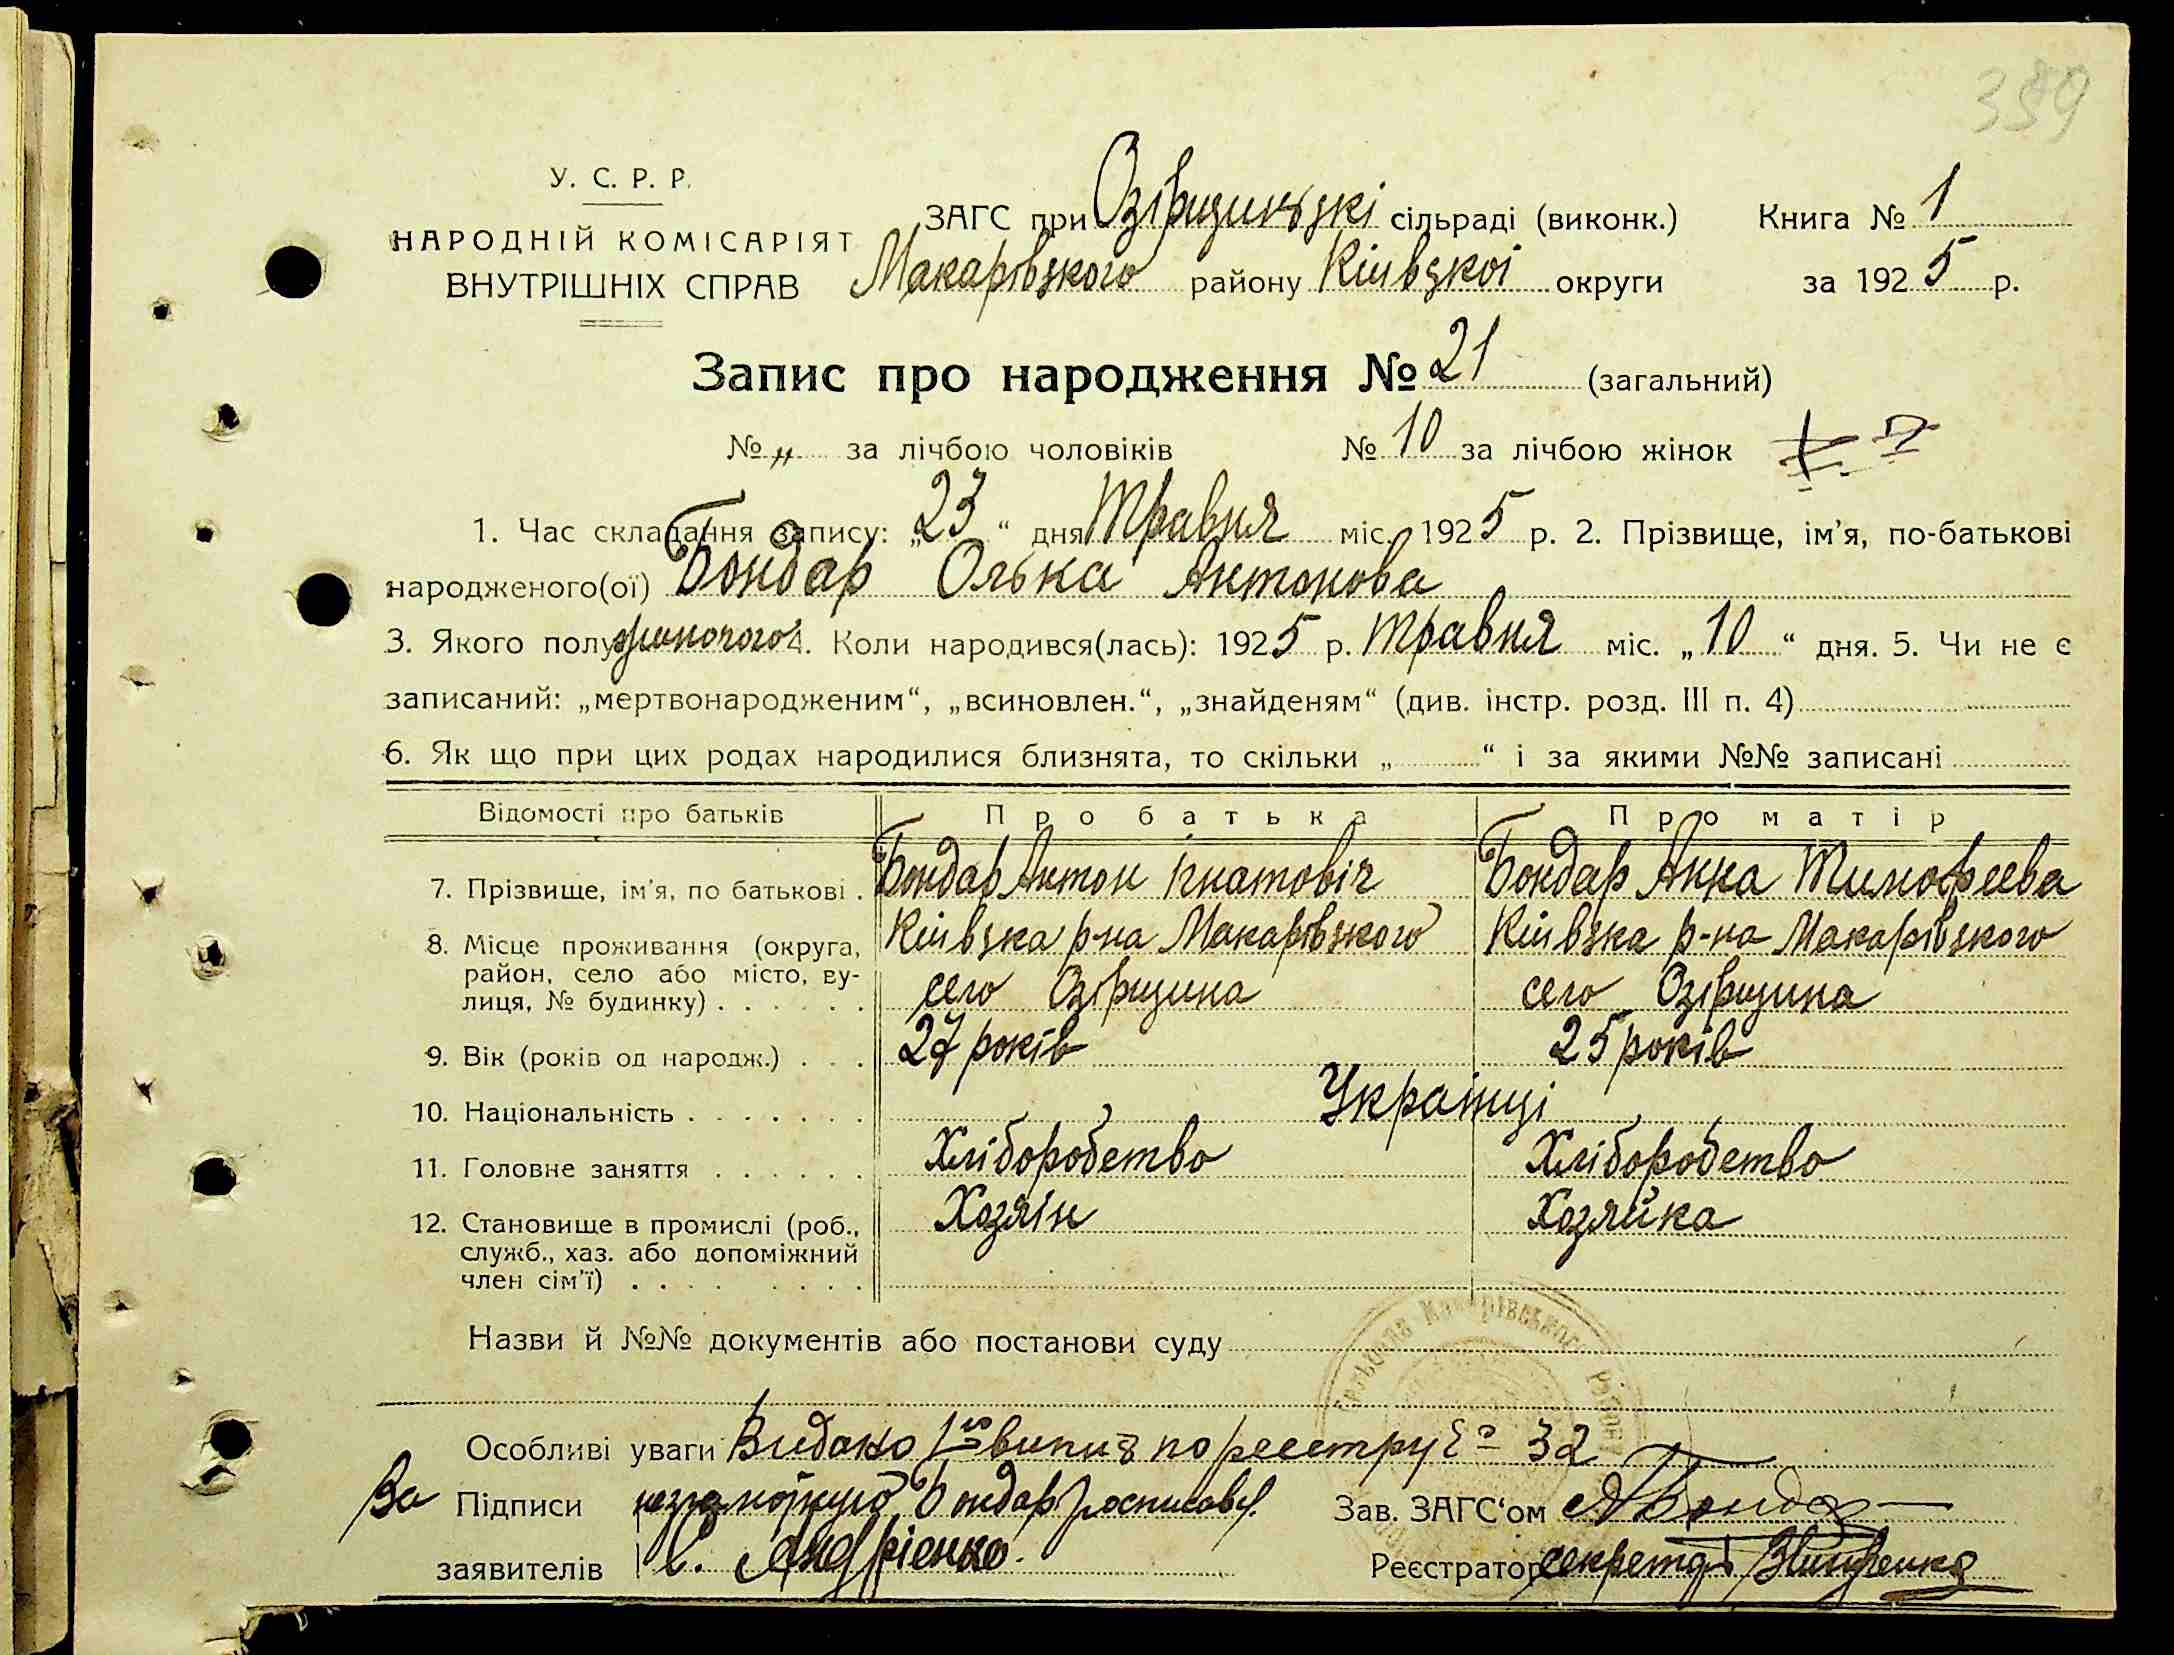 389
У. С. Р. Р.
НАРОДНІЙ КОМІСАРІЯТ
ВНУТРІШНІХ СПРАВ
ЗАГС при Озірщиньзкі сільраді (виконк.) Книга № 1
Макарівзкого району Київзкоі округи за 1925 р.
Запис про народження № 21 (загальний)
№ „ за лічбою чоловіків № 10 за лічбою жінок
1. Час складання запису: „23“ дня Травня міс. 1925 р. 2. Прізвище, ім'я, по-батькові
народженого(ої) Бондар Олька Антонова
3. Якого полу жиночого 4. Коли народився(лась): 1925 р. Травня міс. „10“ дня. 5. Чи не є
записаний: „мертвонародженим“, „всиновлен.“, „знайденям“ (див. інстр. розд. III п. 4)
6. Як що при цих родах народилися близнята, то скільки „ “ і за якими №№ записані
Відомості про батьків Про батька Про матір
7. Прізвище, ім'я, по батькові . Бондар Антон Ігнатовіч Бондар Анна Тимофеева
8. Місце проживання (округа, Київзка р-на Макарівзкого Київзка р-на Макарівзкого
район, село або місто, ву-
лиця, № будинку) . . . . . . село Озірщина село Озірщина
9. Вік (років од народж.) . . . 27 років 25 років
10. Національність . . . . . . . Украінці
11. Головне заняття . . . . . . Хліборобство Хліборобство
12. Становище в промислі (роб., Хозяін Хозяйка
служб., хаз. або допоміжний
член сім'ї) . . . . . . . . .
Назви й №№ документів або постанови суду
Особливі уваги Видано 1 випис по реестру № 32
За Підписи незаможную Бондар росписався Зав. ЗАГС'ом А Бондар
заявителів С. Андрієнко. Реєстратор секретар
Макарівського району